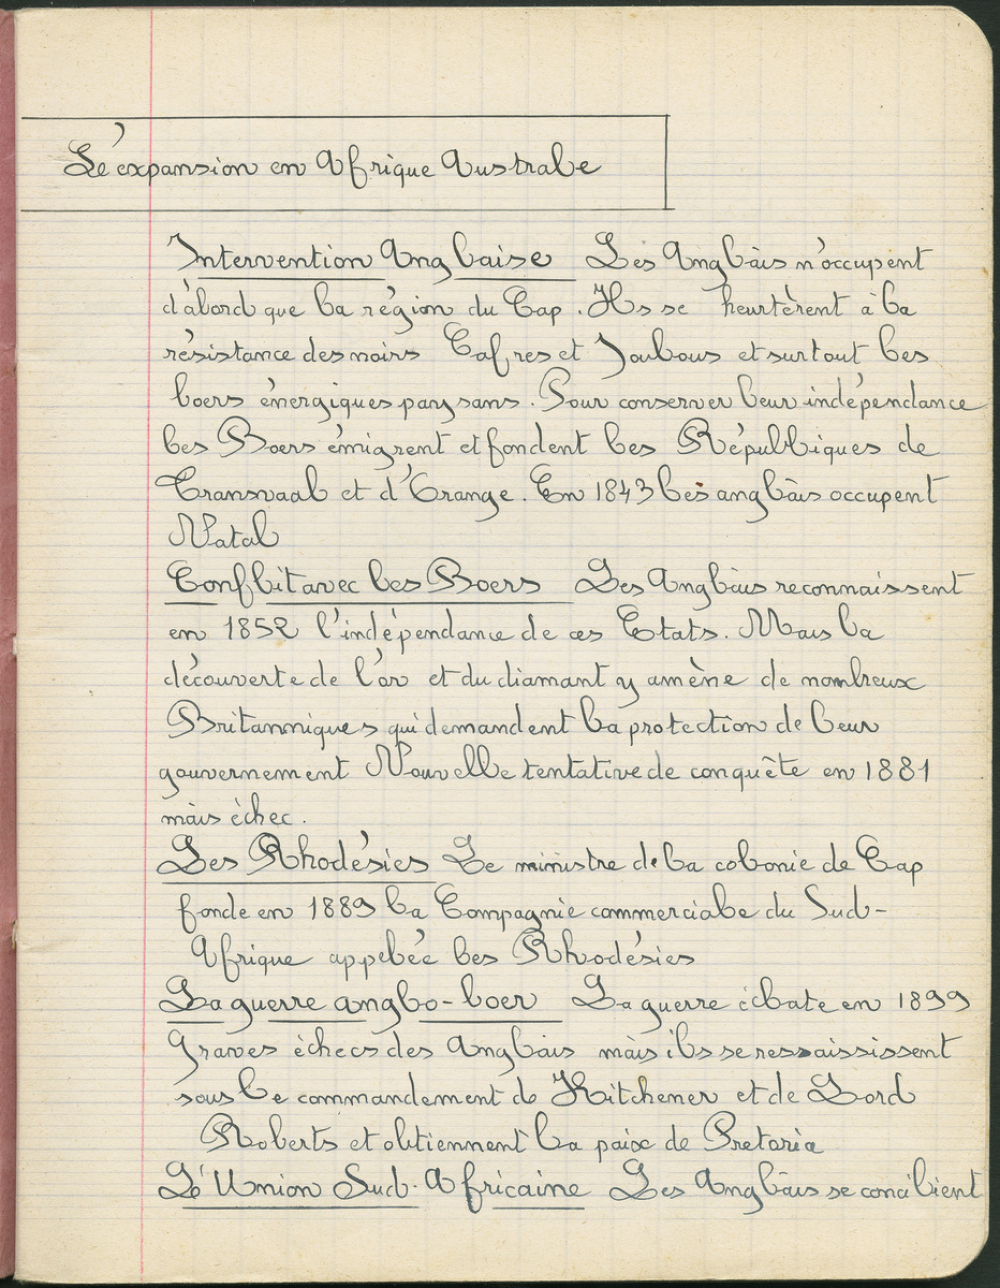 L'expansion en Afrique Australe
Intervention Anglaise Les Anglais n'occupent
d'abord que la région du Cap. Ils se heurtèrent à la
résistance des noirs Cafres et Zoulous et surtout les
boers énergiques paysans. Pour conserver leur indépendance
les Boers émigrent et fondent les Républiques de
Transvaal et d'Orange. En 1843 les anglais occupent
Natal
Conflit avec les Boers Les Anglais reconnaissent
en 1852 l'indépendance de ces Etats. Mais la
découverte de l'or et du diamant y amène de nombreux
Britanniques qui demandent la protection de leur
gouvernement Nouvelle tentative de conquête en 1881
mais échec.
Les Rhodésies Le ministre de la colonie de Cap
fonde en 1889 la Compagnie commerciale du Sud-
Afrique appelée les Rhodésies
La guerre anglo-boer La guerre éclate en 1899
Graves échecs des Anglais mais ils se ressaississent
sous le commandement de Kitchener et de Lord
Roberts et obtiennent la paix de Pretoria
L'Union Sud-Africaine Les Anglais se concilient